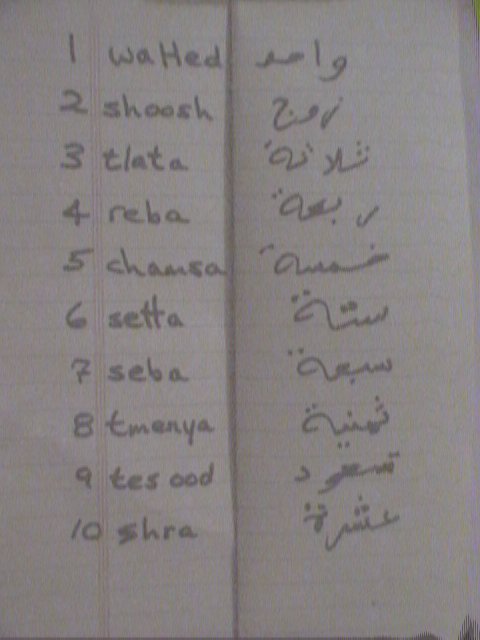 1 waHed واحد
2 shoosh زوج
3 tlata ثلاثة
4 reba ربعة
5 chamsa خمسة
6 setta ستة
7 seba سبعة
8 tmenya ثمنية
9 tes ood تسعود
10 shra عشرة